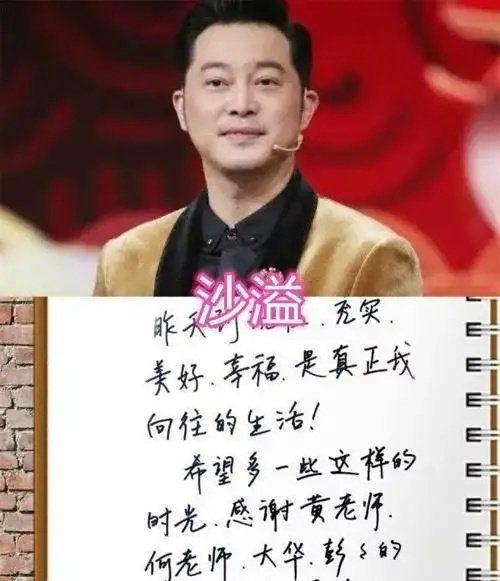 沙溢
昨天 充实、
美好、幸福、是真正我
向往的生活！
希望多一些这样的
时光、感谢黄老师、
何老师、大华、彭彭的